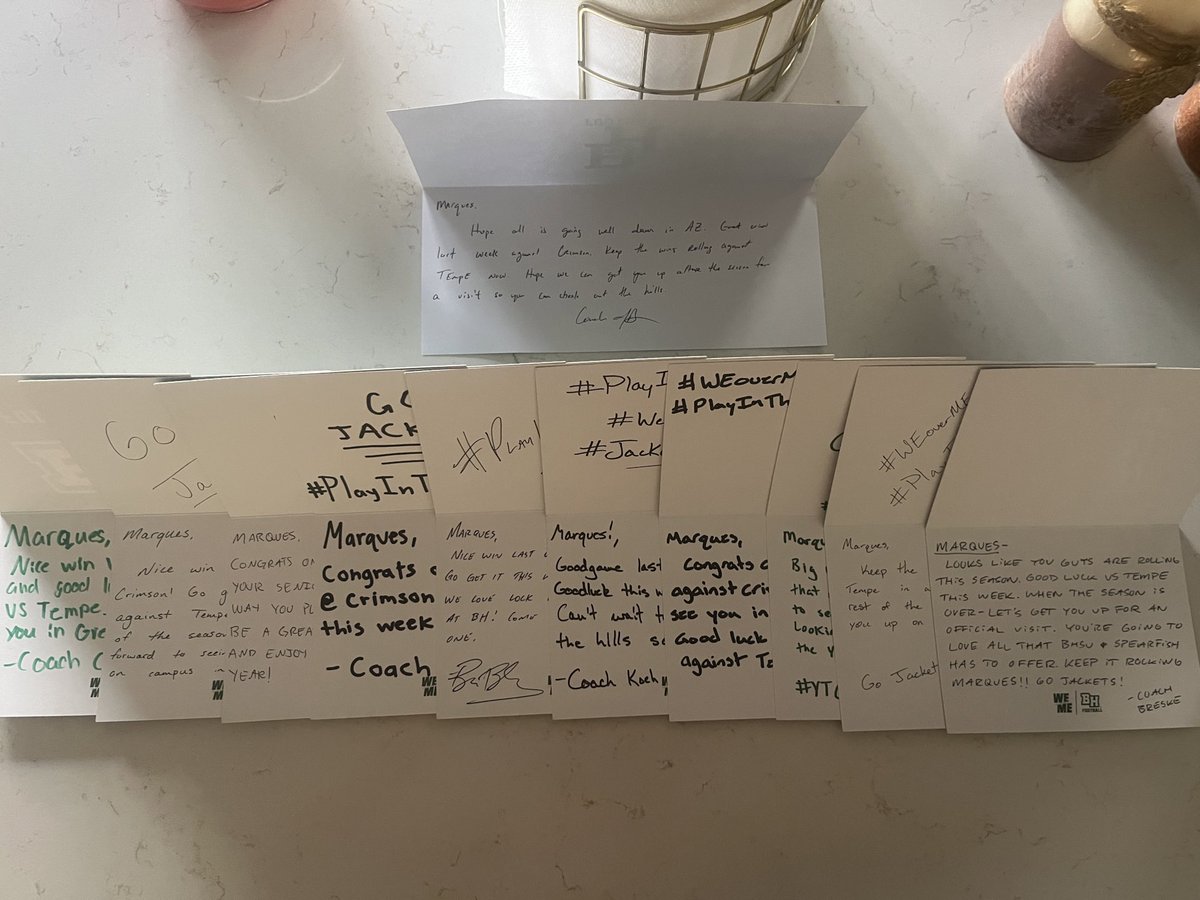 Marques,
Hope all is going well down in AZ. Great win
last week against Crimson. Keep the wins rolling against
Tempe now. Hope we can get you up after the season for
a visit so you can check out the hills.
Coach
Go
Ja
GO
JACK
#PlayInT
#Play
#PlayI
#We
#Jack
#WEoverM
#PlayInTh
#WEoverME
#Pla
Marques,
Nice win
and good l
VS Tempe.
you in Gre
-Coach C
WE
ME
Marques,
Nice win
Crimson! Go g
against Temp
of the season
forward to seein
on campus
MARQUES,
CONGRATS ON
YOUR SENIO
WAY YOU PL
BE A GREA
AND ENJOY
YEAR!
Marques,
Congrats
@ Crimson
this week
- Coach
WE
ME
MARQUES,
NICE WIN LAST
GO GET IT THIS
WE LOVE LOCK
AT BH! COME
ONE.
Marques!,
Goodgame last
Goodluck this w
Can't wait t
the hills so
-Coach Koch
Marques,
Congrats
against Cri
see you in
Good luck
against Te
Marqu
Big
that
to se
Lookin
the Y
#YTC
Marques,
Keep the
Tempe in a
rest of the
you up on
Go Jacket
MARQUES-
LOOKS LIKE YOU GUTS ARE ROLLING
THIS SEASON. GOOD LUCK VS TEMPE
THIS WEEK. WHEN THE SEASON IS
OVER-LET'S GET YOU UP FOR AN
OFFICIAL VISIT. YOU'RE GOING TO
LOVE ALL THAT BHSU & SPEARFISH
HAS TO OFFER. KEEP IT ROCKING
MARQUES!! GO JACKETS!
-COACH
BRESKE
WE
ME
BH
FOOTBALL